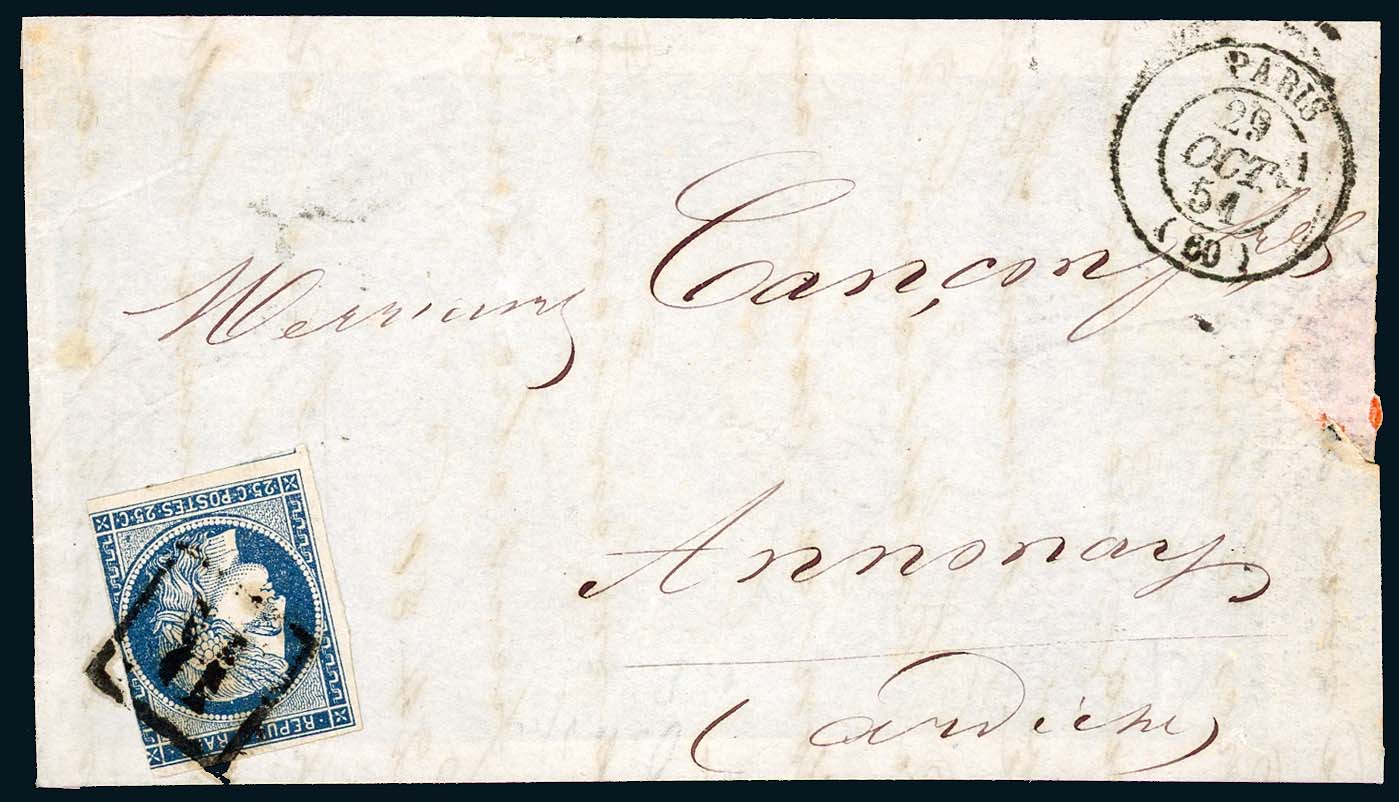 PARIS
29
OCT.
51
(60)
Messieurs Cançon fres
Annonay
(ardèche)
25.C.POSTES.25.C.
REPUB FRA